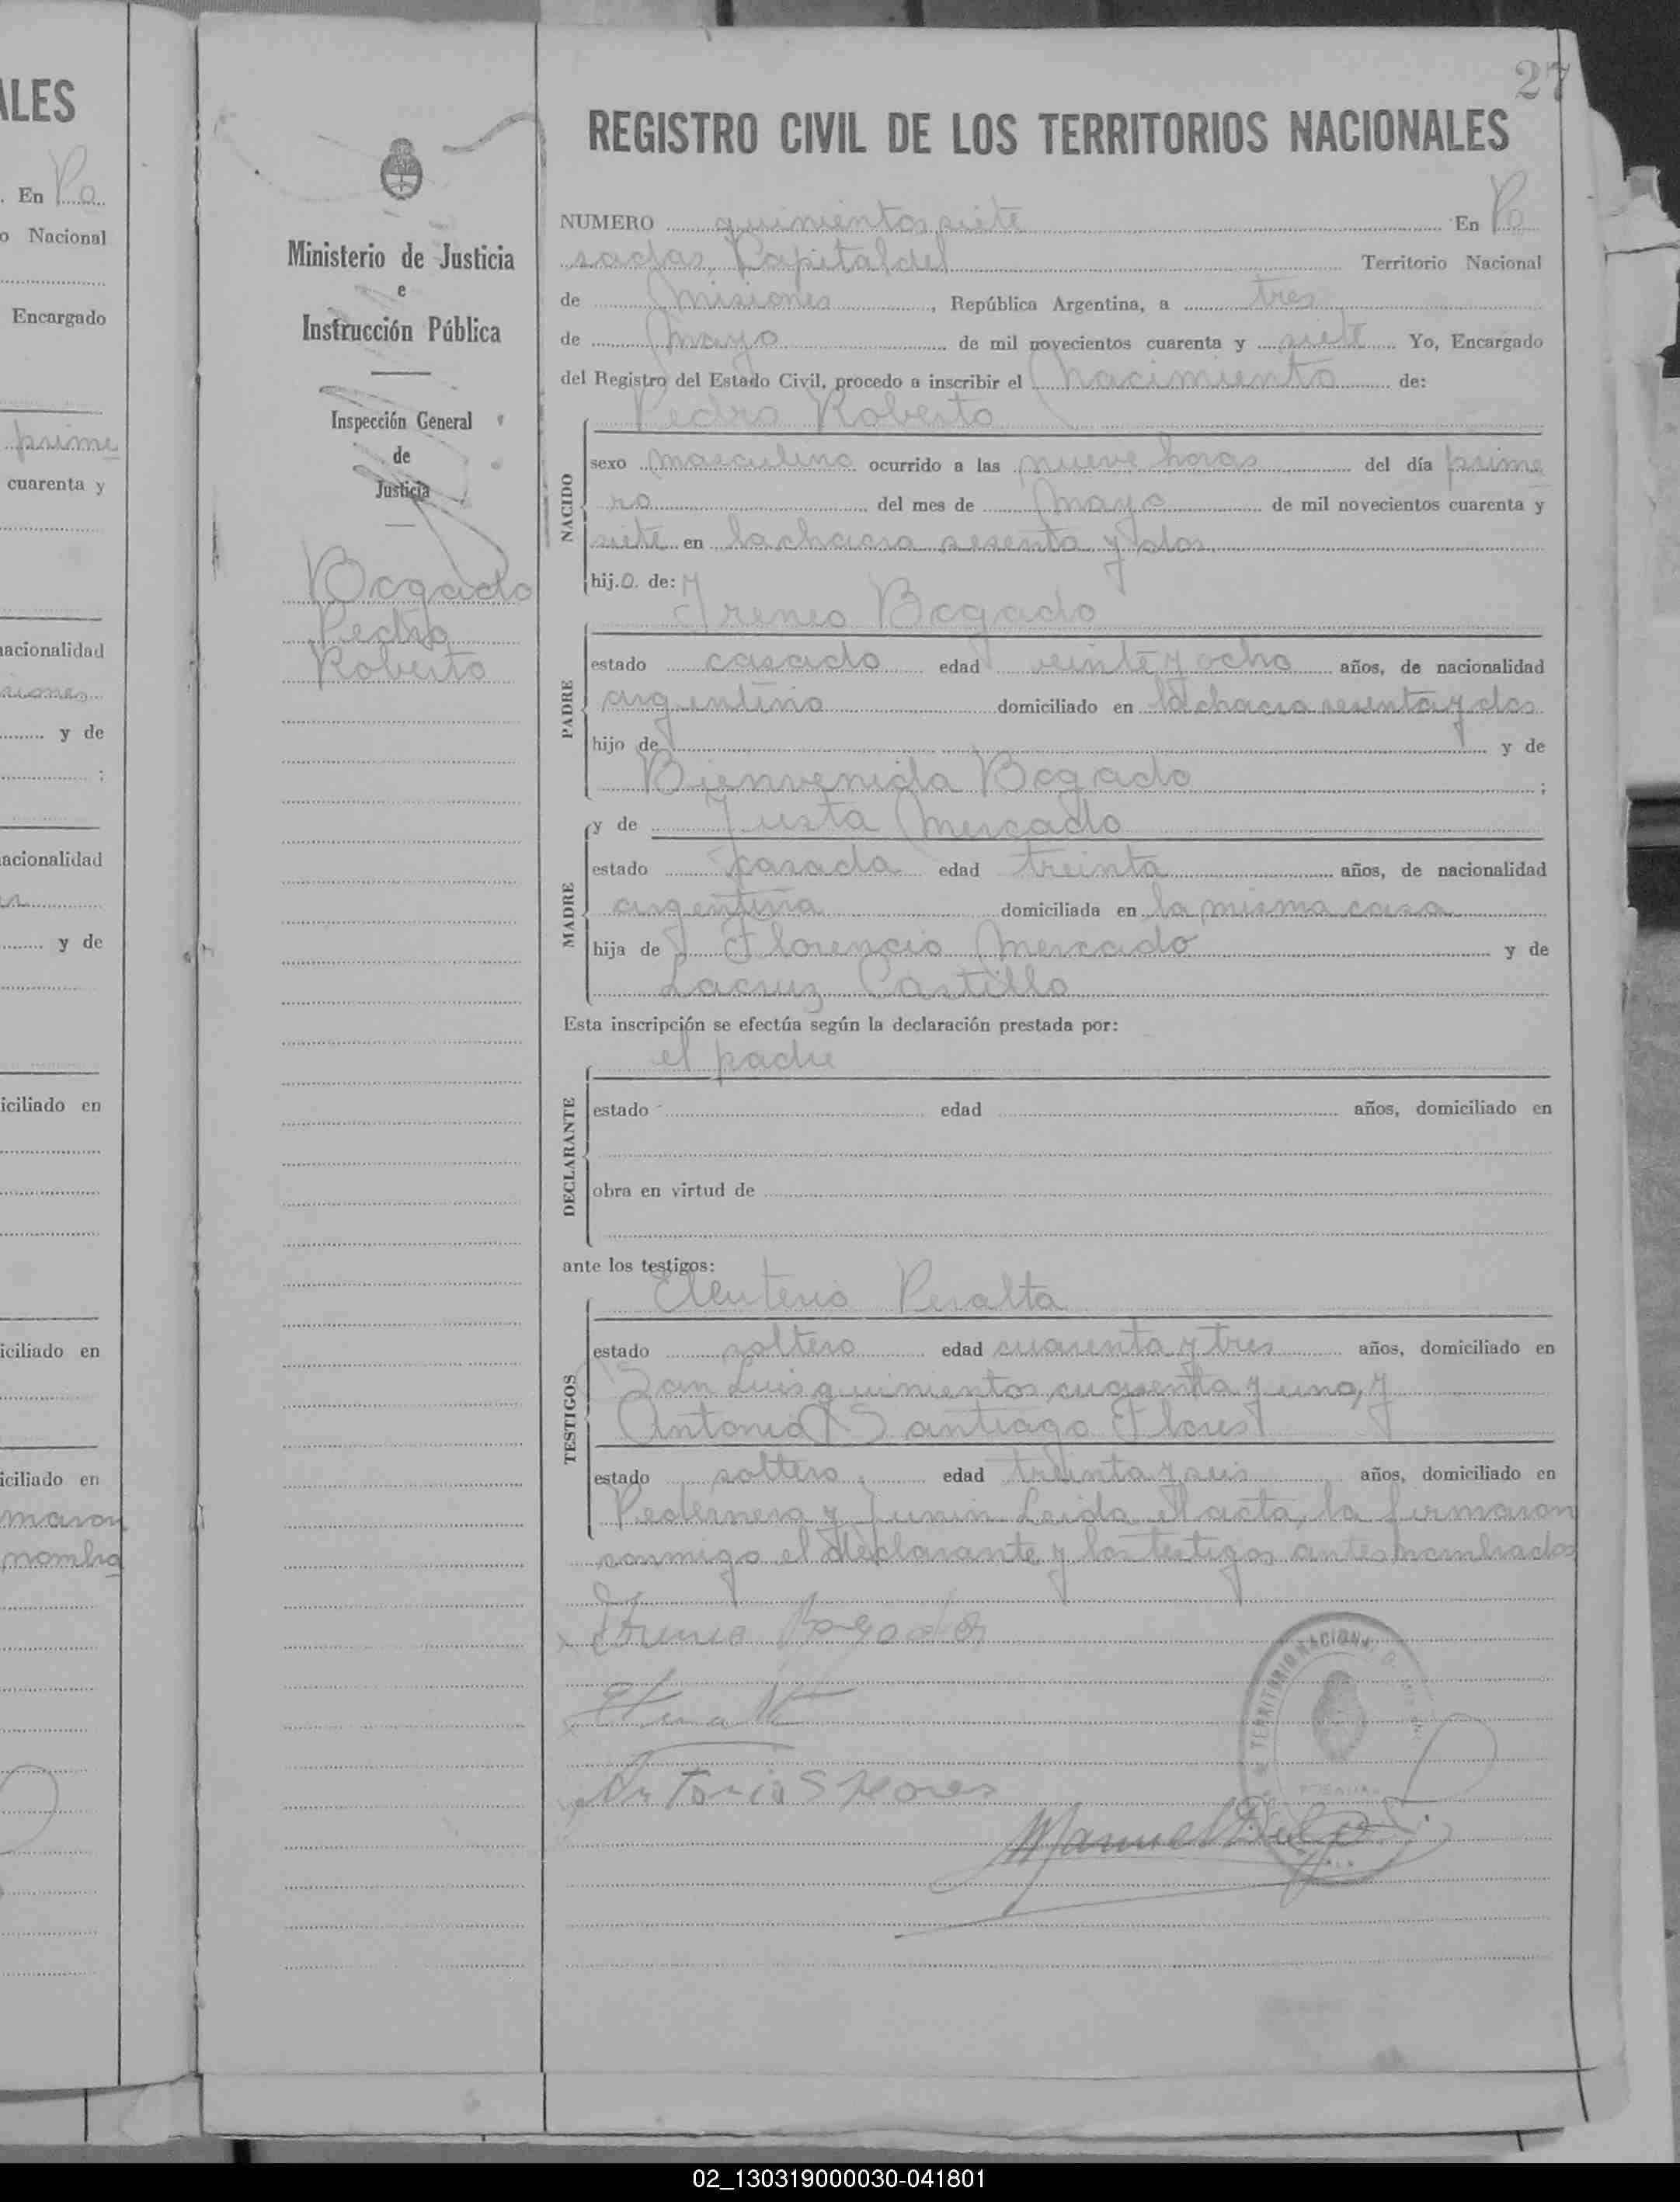 ALES
. En Po
o Nacional
Encargado
prime
cuarenta y
nacionalidad
siones
y de
;
nacionalidad
y de
iciliado en
iciliado en
iciliado en
maron
nombra
27
Ministerio de Justicia
e
Instrucción Pública
Inspección General
de
Justicia
Bogado
Pedro
Roberto
REGISTRO CIVIL DE LOS TERRITORIOS NACIONALES
NUMERO quinientos siete En Po
sadas, Capital del Territorio Nacional
de Misiones, República Argentina, a tres
de Mayo de mil novecientos cuarenta y siete Yo, Encargado
del Registro del Estado Civil, procedo a inscribir el Nacimiento de:
Pedro Roberto
NACIDO
sexo masculino ocurrido a las nueve horas del día prime
ro del mes de Mayo de mil novecientos cuarenta y
siete en la chacra sesenta y dos
hij.o. de:
Ireneo Bogado
PADRE
estado casado edad veinte y ocho años, de nacionalidad
argentino domiciliado en la chacra sesenta y dos
hijo de y de
Bienvenida Bogado ;
y de Justa Mercado
MADRE
estado casada edad treinta años, de nacionalidad
argentina domiciliada en la misma casa
hija de Florencio Mercado y de
Lacruz Castillo
Esta inscripción se efectúa según la declaración prestada por:
el padre
DECLARANTE
estado edad años, domiciliado en
obra en virtud de
ante los testigos:
Eleuterio Peralta
TESTIGOS
estado soltero edad cuarenta y tres años, domiciliado en
San Luis quinientos cuarenta y uno, y
Antonio Santiago Flores
estado soltero, edad treinta y seis años, domiciliado en
Pedernera y Junin Leida el acta, la firmaron
conmigo el declarante y los testigos antes nombrados
Ireneo Bogado
Antonio S Flores
Manuel
TERRITORIO NACIONAL D
02_130319000030-041801